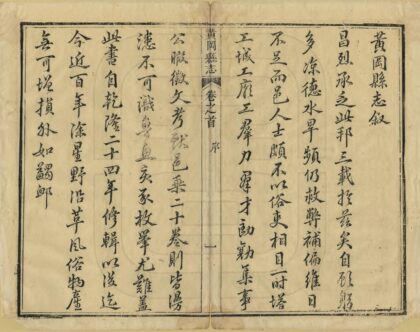 黃岡縣志敘
昌烈承乏此邦三載於茲矣自顧躬
多涼德水旱頻仍救弊補偏維日
不足而邑人士頗不以俗吏相目一時塔
工城工廟工羣力羣才劻勷集事
黃岡縣志 卷之首 序 一
公暇徵文考獻邑乘二十卷則皆漫
漶不可識魯魚亥豕枚舉尤難蓋
此書自乾隆二十四年修輯以後迄
今近百年除星野沿革風俗物產
無可增損外如蠲卹